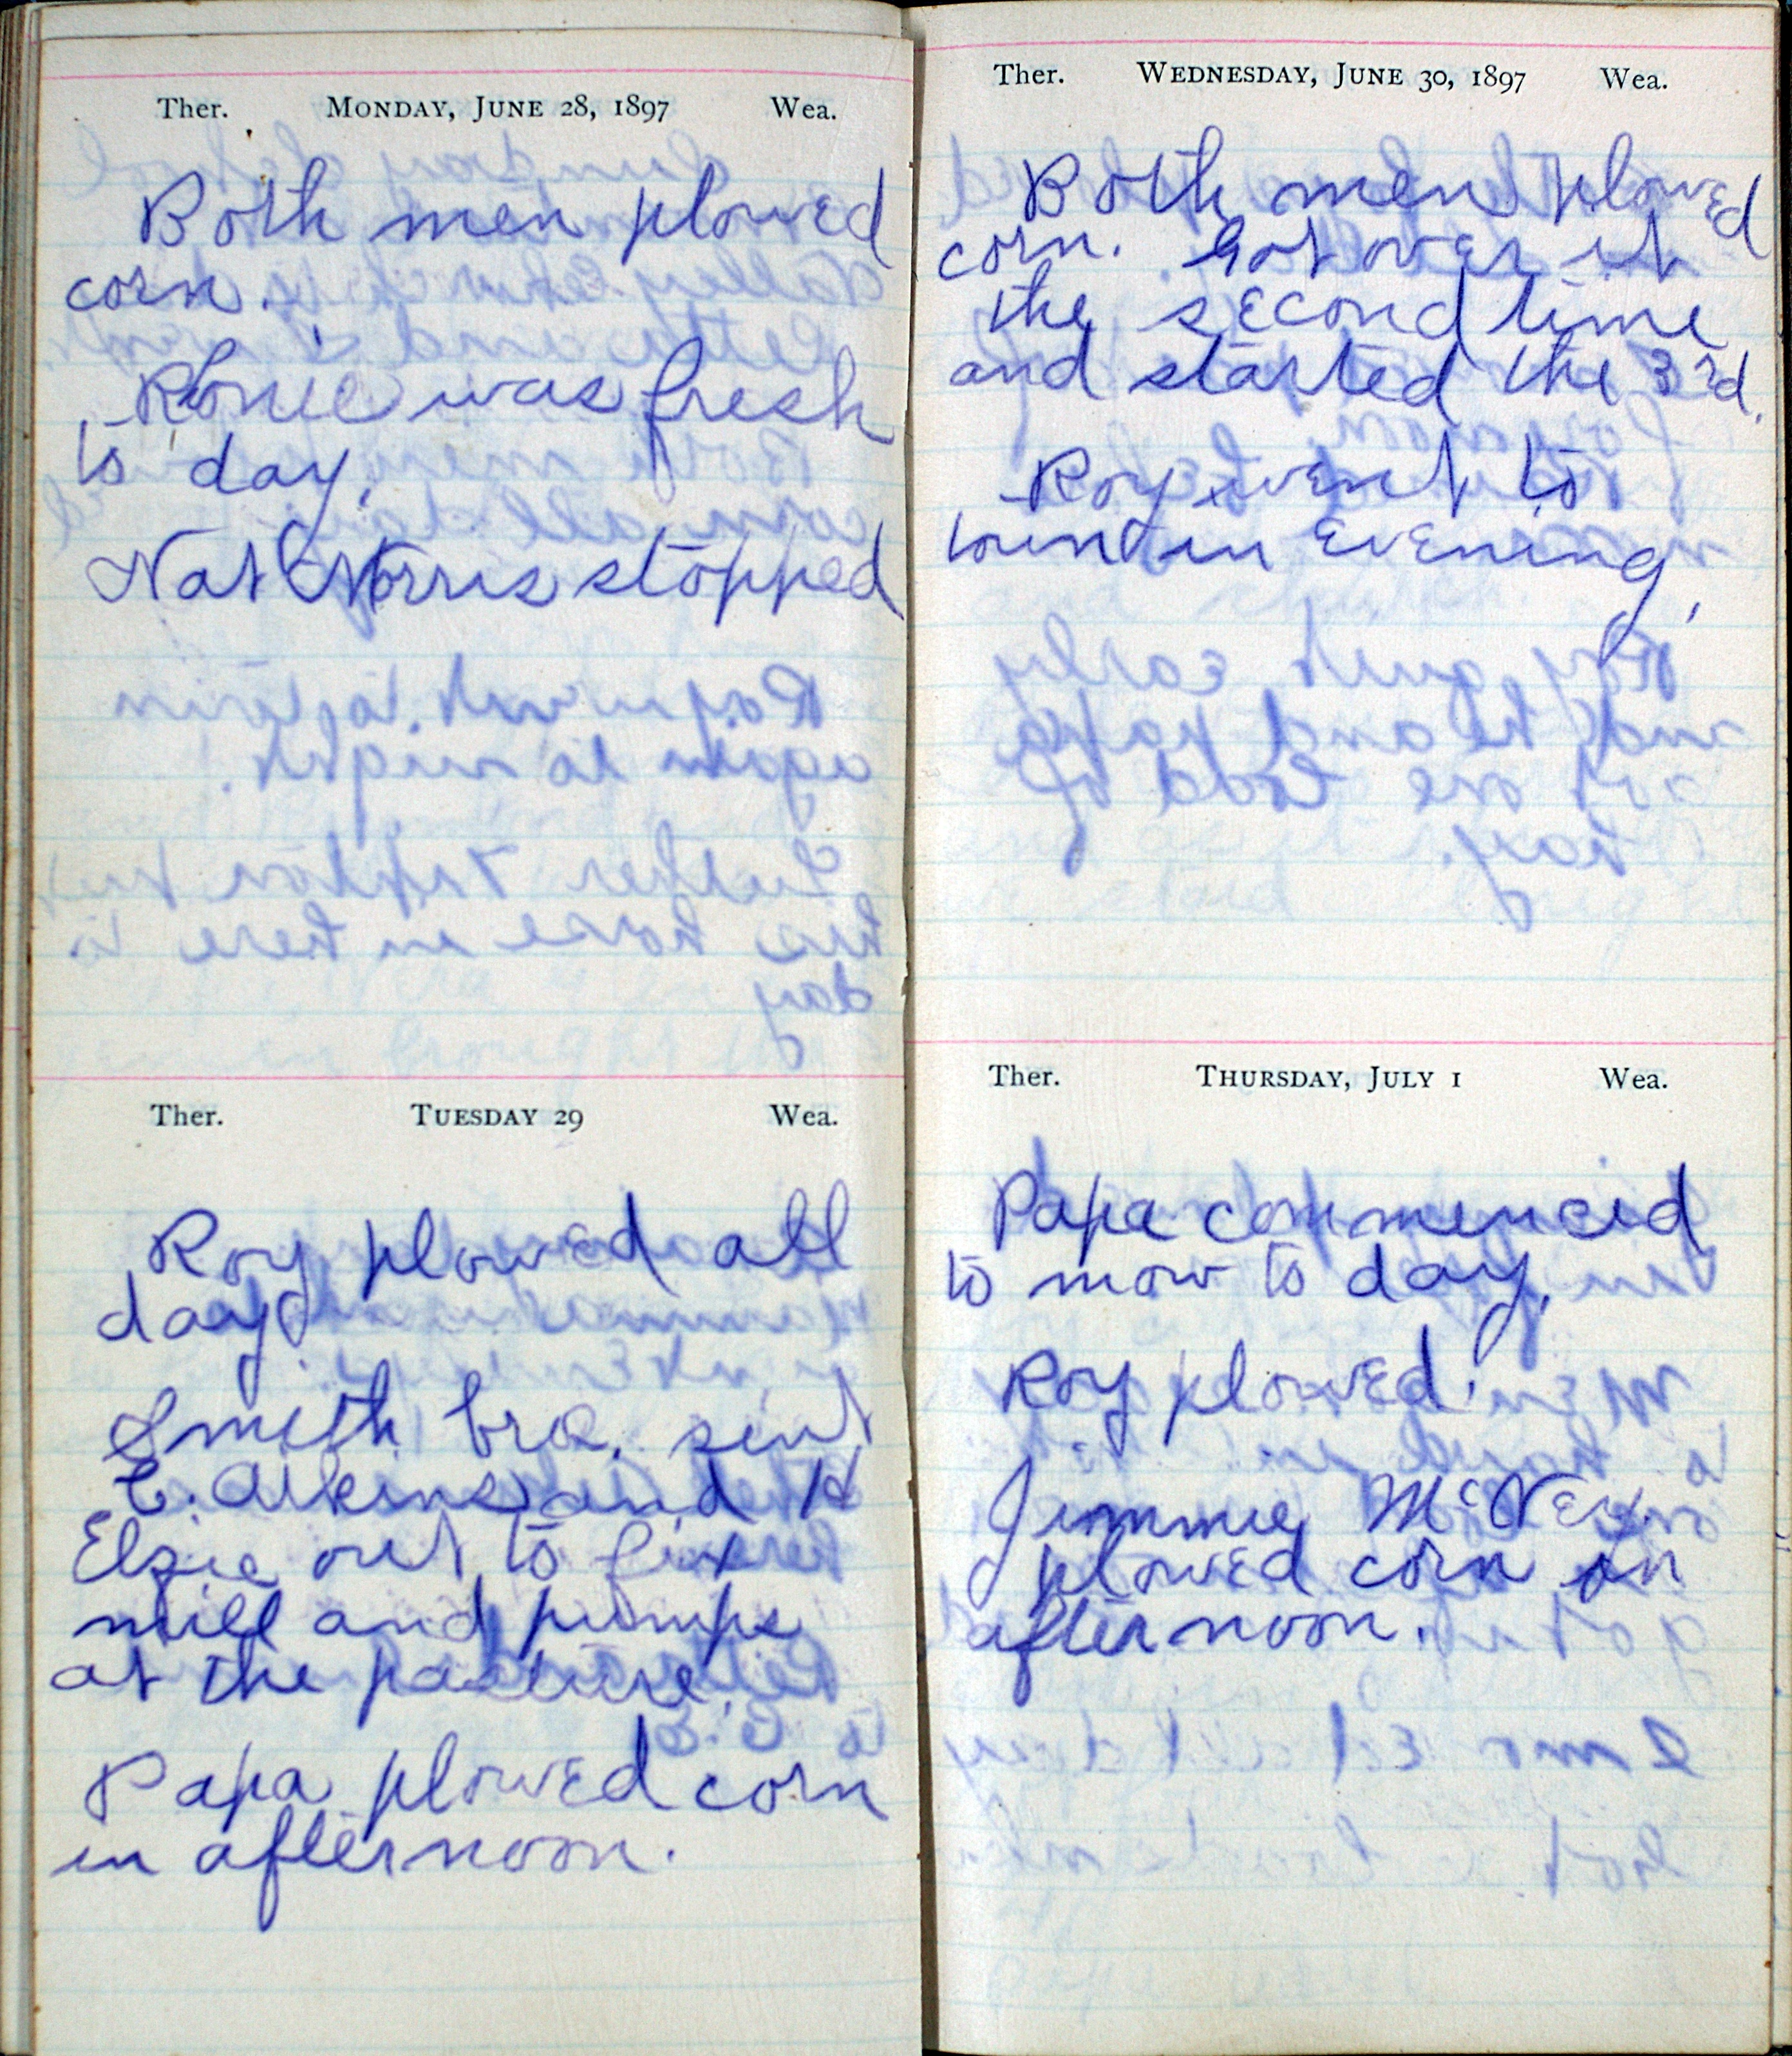 Ther. MONDAY, JUNE 28, 1897 Wea.
Both men plowed
corn.
was fresh
to day.
Nat Norris stopped
Ther. TUESDAY 29 Wea.
Roy plowed all
day
Smith bro. sent
C. Atkins and H
Elsie out to fix
mill and pumps
at the pasture.
Papa plowed corn
in afternoon.
Ther. WEDNESDAY, JUNE 30, 1897 Wea.
Both men plowed
corn. Got over it
the second time
and started the 3rd.
Roy went to
town in evening,
Ther. THURSDAY, JULY 1 Wea.
Papa commenced
to mow to day,
Roy plowed.
Jimmie
plowed corn in
afternoon.